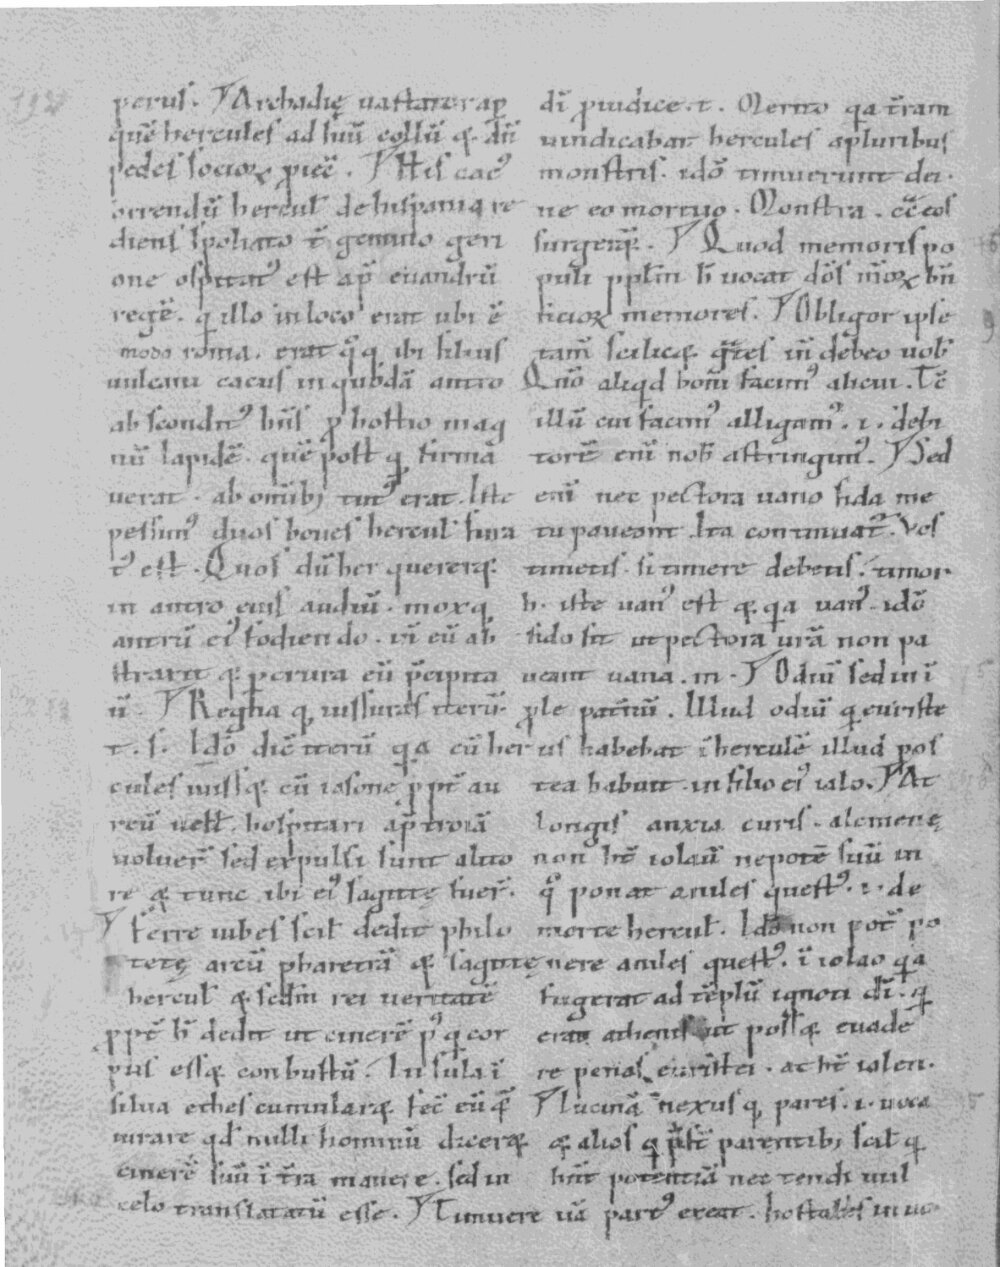 perus. Archadię uastator ap
quē hercules ad suū collū q̨. dū
pedes socioꝝ piec̄. His cac᷒
orrendū hercul̄ de hispania re
diens spoliato t̄gemino geri
one ospitat᷒ est ap̄ euandrū
regē. q̄ illo in loco erat ubi ē
modo roma. erat q̊q̨ ibi filius
uulcani cacus in quodā antro
abscondit᷒ hn̄s p̱ hostio mag
nū lapidē. quē post q̨ firma
uerat. ab omīb; tut᷒ erat. Iste
pessim᷒ duos boues hercul̄ fura
t᷒ est. Quos dū her quereret̨
in antro eius audiū. moxq̨
antrū ei᷒ fodiendo. ui eū ab
straxit q̨ p̱erura eū p̄cipita
ū. Regna q̨ uissuras iterū.
t. s. Ido dic̄ iterū q̱a cū her
cules iuiss&. cū iasone p̱pt̄ au
reū uell̄. hospitari ap̄ troiā
uoluer̄ sed expulsi sunt alio
re & tunc ibi ei᷒ sagittę fuer̄.
ferre iubes scil̄ dedit philo
tetę arcū pharetrā & sagittę
hercul̄ & sedm̄ rei ueritatē
p̱pt̄ h̄ dedit ut cinerē p᷒ q̨ cor
pus ess& conbustū. In sula ī
silua ethes cumular&. fec̄ eū q̄
iurare qd̄ nulli hominū dicer&
cinerē suū ī t̄ra manere. sed in
celo translatatū esse. Timuere
dī p̱iudice. i. Merito q̱a t̄ram
uindicabat hercules apluribus
monstris. idō timuerunt dei.
ne eo mortuo. Monstra. cc̄ eos
surger&. Quod memoris po
puli pplm̄ h̄ uocat dōs m̄oꝝ bn̄
ficioꝝ memores. Obligor ipse
tam̄ scilic&. gr̄tes in̄ debeo uob̄
Quō aliq̱d bonū facim᷒ alicui. Tc̄
illū cui facim᷒ alligam᷒. i. debi
torē enī nob̄ astringim᷒. Sed
enī nec pectora uano fida me
tu paueant. Ita continuat᷒. Vos
timetis. si timere debetis. timor
h. iste uan᷒ est & q̱a uan᷒. idō
fido sit ut pectora ur̄a non pa
ueant uana. m. Odiū sed in ī
p̱le patr̄iū. Illud odiū q̨ euriste
us habebat ī herculē illud pos
tea habuit in filio ei᷒ ialo. At
longis anxia curis. alcmenę
non ht̄ iolaū nepotē suū in
q̊ ponat aniles quest᷒. i. de
morte hercul̄. Idō non pot̄ po
nere aniles quest᷒. ī iolao q̱a
fugerat ad tēplū ignoti dī. q̨
erat athenis ut poss& euade
re penas euristei. at ht̄ iolen.
lucinā nexus q̨ pares. i. uoca
& alios q̨ p̄st̄ parentib; scil̄ q̨
hn̄t potentiā nec tendi uul
uā part᷒ exeat. hostales in uo